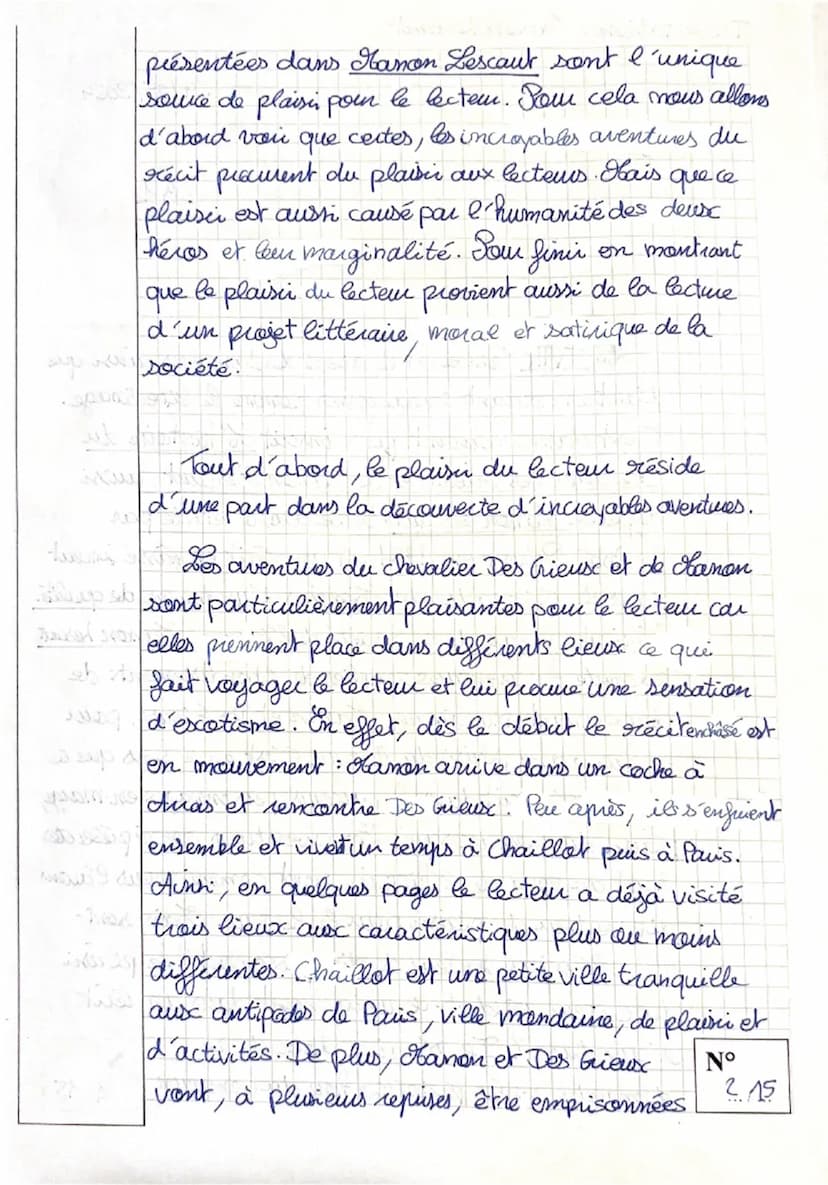 présentées dans Manon Lescaut sont l'unique
source de plaisir pour le lecteur. Pour cela nous allons
d'abord voir que certes, les incroyables aventures du
récit procurent du plaisir aux lecteurs. Mais que ce
plaisir est aussi causé par l'humanité des deux
héros et leur marginalité. Pour finir en montrant
que le plaisir du lecteur provient aussi de la lecture
d'un projet littéraire, moral et satirique de la
société.
Tout d'abord, le plaisir du lecteur réside
d'une part dans la découverte d'incroyables aventures.
Les aventures du chevalier Des Grieux et de Manon
sont particulièrement plaisantes pour le lecteur car
elles prennent place dans différents lieux ce qui
fait voyager le lecteur et lui procure une sensation
d'exotisme. En effet, dès le début le récit enchâssé est
en mouvement : Manon arrive dans un coche à
Arras et rencontre Des Grieux. Peu après, ils s'enfuient
ensemble et vivent un temps à Chaillot puis à Paris.
Ainsi, en quelques pages le lecteur a déjà visité
trois lieux aux caractéristiques plus ou moins
différentes. Chaillot est une petite ville tranquille
aux antipodes de Paris, ville mondaine, de plaisir et
d'activités. De plus, Manon et Des Grieux
vont, à plusieurs reprises, être emprisonnées
N°
2/15